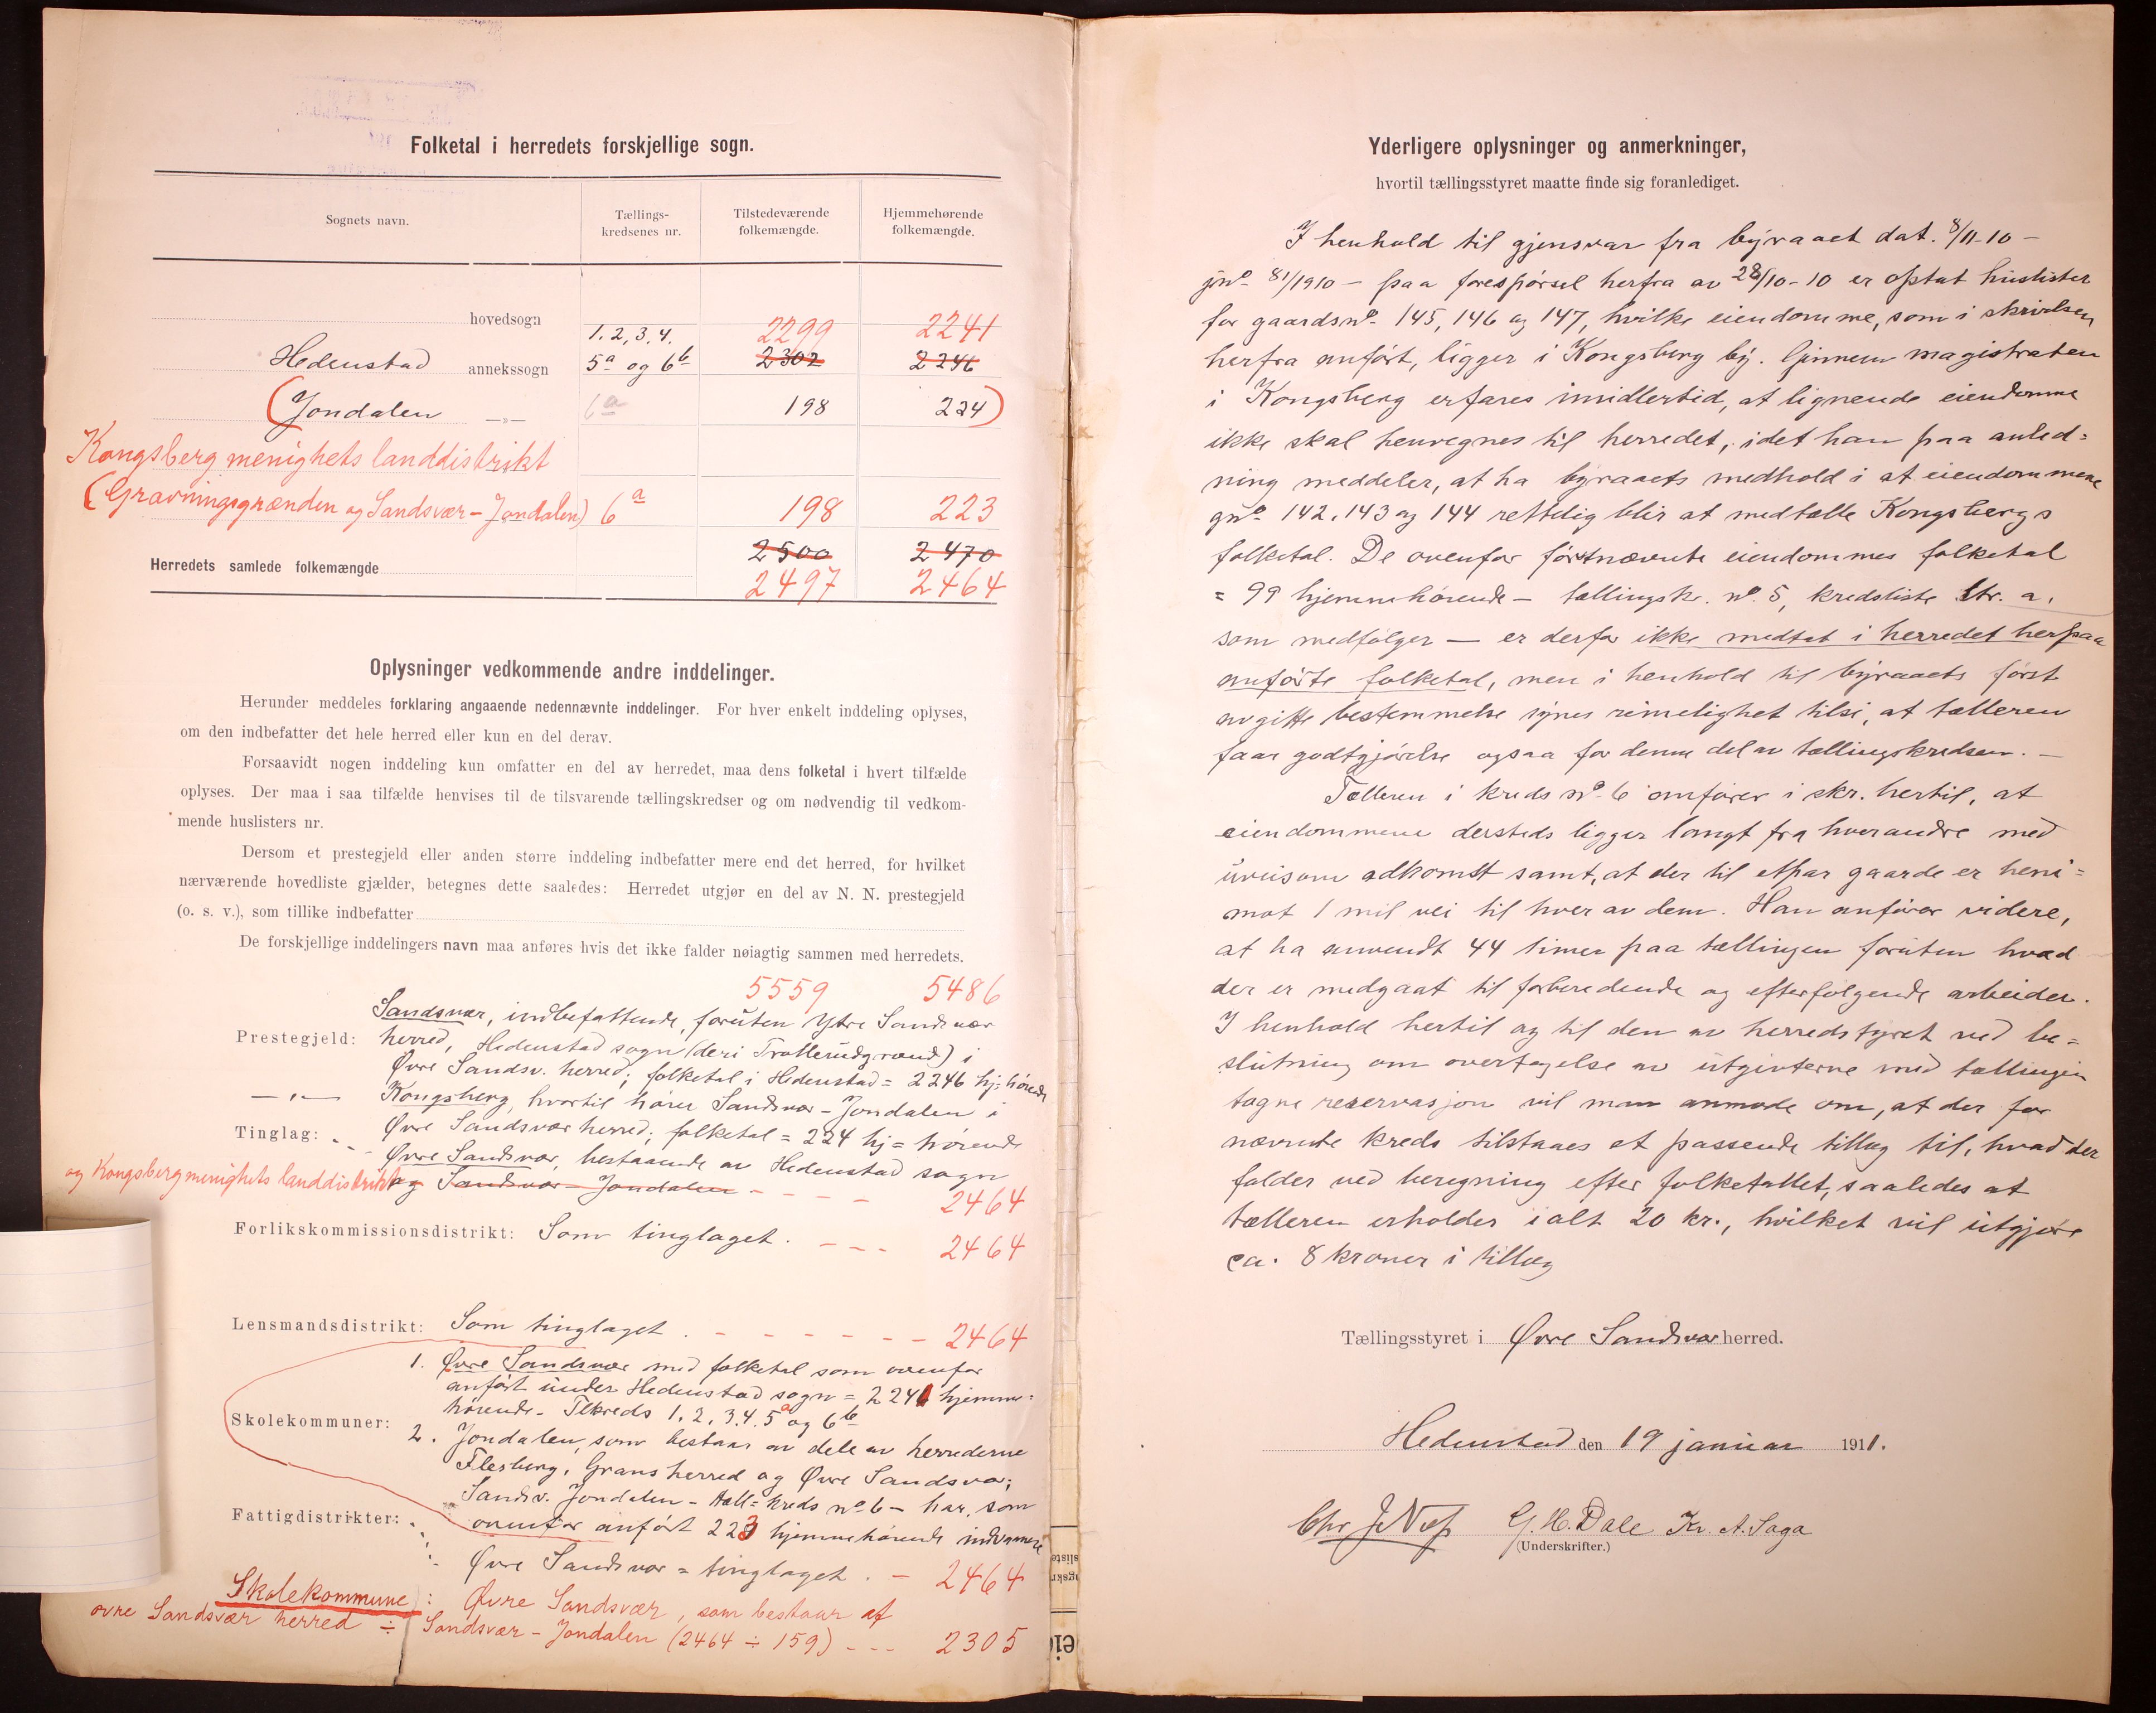 Folketal i herredets forskjellige sogn.
Sognets navn.
Tællings-
kredsenes nr.
Tilstedeværende
folkemængde.
Hjemmehørende
folkemængde.
hovedsogn
1. 2, 3, 4. 2299 2241
Hedenstad annekssogn 5a og 6b 2302 2246
(Jondalen —„— 6a 198 224)
Kongsberg menighets landdistrikt
(Gravningsgrænden og Sandsvær - Jondalen) 6a 198 223
2500 2470
Herredets samlede folkemængde
2497 2464
Oplysninger vedkommende andre inddelinger.
Herunder meddeles forklaring angaaende nedennævnte inddelinger. For hver enkelt inddeling oplyses,
om den indbefatter det hele herred eller kun en del derav.
Forsaavidt nogen inddeling kun omfatter en del av herredet, maa dens folketal i hvert tilfælde
oplyses. Der maa i saa tilfælde henvises til de tilsvarende tællingskredser og om nødvendig til vedkom-
mende huslisters nr.
Dersom et prestegjeld eller anden større inddeling indbefatter mere end det herred, for hvilket
nærværende hovedliste gjælder, betegnes dette saaledes: Herredet utgjør en del av N. N. prestegjeld
(o. s. v.), som tillike indbefatter
De forskjellige inddelingers navn maa anføres hvis det ikke falder nøiagtig sammen med herredets.
5559 5486
Sandsvær, indbefattende, foruten Ytre Sandsvær
Prestegjeld: herred, Hedenstad sogn (deri Trollerudgrænd) i
Øvre Sandsv. herred; folketal i Hedenstad = 2246 hj=hørende
—„— Kongsberg, hvortil hører Sandsvær - Jondalen i
Øvre Sandsvær herred; folketal = 224 hj = hørende
Tinglag: Øvre Sandsvær, bestaaende av Hedenstad sogn
og Kongsberg menighets landdistrikt og Sandsvær - Jondalen - - - -
2464
Forlikskommissionsdistrikt: Som tinglaget. - - - 2464
Lensmandsdistrikt: Som tinglaget. - - - - - - 2464
1. Øvre Sandsvær med folketal som ovenfor
anført under Hedenstad sogn = 2241 hjemme=
hørende - Tlkreds 1. 2. 3. 4. 5a og 6b
Skolekommuner:
2. Jondalen, som bestaar av dele av herrederne
Flesberg, Gransherred og Øvre Sandsvær;
Sandsv. Jondalen - tæll=kreds no 6 - har, som
ovenfor anført 223 hjemmehørende indvaanere
Fattigdistrikter:
Øvre Sandsvær = tinglaget. - 2464
Skolekommune: Øvre Sandsvær, som bestaar af
øvre Sandsvær herred ÷ Sandsvær - Jondalen (2464 ÷ 159) - - - 2305
Yderligere oplysninger og anmerkninger,
hvortil tællingsstyret maatte finde sig foranlediget.
I henhold til gjensvar fra byraaet dat. 8/11-10 -
jno 81/1910 - paa forespørsel herfra av 28/10-10 er optat huslister
for gaardsno 145, 146 og 147, hvilke eiendomme, som i skrivelsen
herfra anført, ligger i Kongsberg by. Gjennem magistraten
i Kongsberg erfares imidlertid, at lignende eiendomme
ikke skal henregnes til herredet, idet han paa anled=
ning meddeler, at ha byraaets medhold i at eiendommene
gno 142, 143 og 144 rettelig blir at medtælle Kongsbergs
folketal. De ovenfor førstnævnte eiendommes folketal
= 99 hjemmehørende - tællingskr. no. 5, kredsliste ltr. a,
som medfølger - er derfor ikke medtat i herredet herpaa
anførte folketal, men i henhold til byraaets først
avgitte bestemmelse synes rimelighet tilsi, at tælleren
faar godtgjørelse ogsaa for denne del av tællingskredsen. -
Tælleren i kreds no 6 anfører i skr. hertil, at
eiendommene dersteds ligger langt fra hverandre med
uveisom adkomst samt, at der til etpar gaarde er heni=
mot 1 mil vei til hver av dem. Han anfører videre,
at ha anvendt 44 timer paa tællingen foruten hvad
der er medgaat til forberedende og efterfølgende arbeider.
I henhold hertil og til den av herredstyret ved be=
slutning om overtagelse av utgifterne ved tællingen
tagne reservasjon vil man anmode om, at der for
nævnte kreds tilstaaes et passende tillæg til, hvad der
falder ved beregning efter folketallet, saaledes at
tælleren erholder ialt 20 kr., hvilket vil utgjøre
ca. 8 kroner i tillæg
Tællingsstyret i Øvre Sandsvær herred.
Hedenstad den 19 januar 1911.
G. H. Dale Kr. A. Saga
(Underskrifter.)